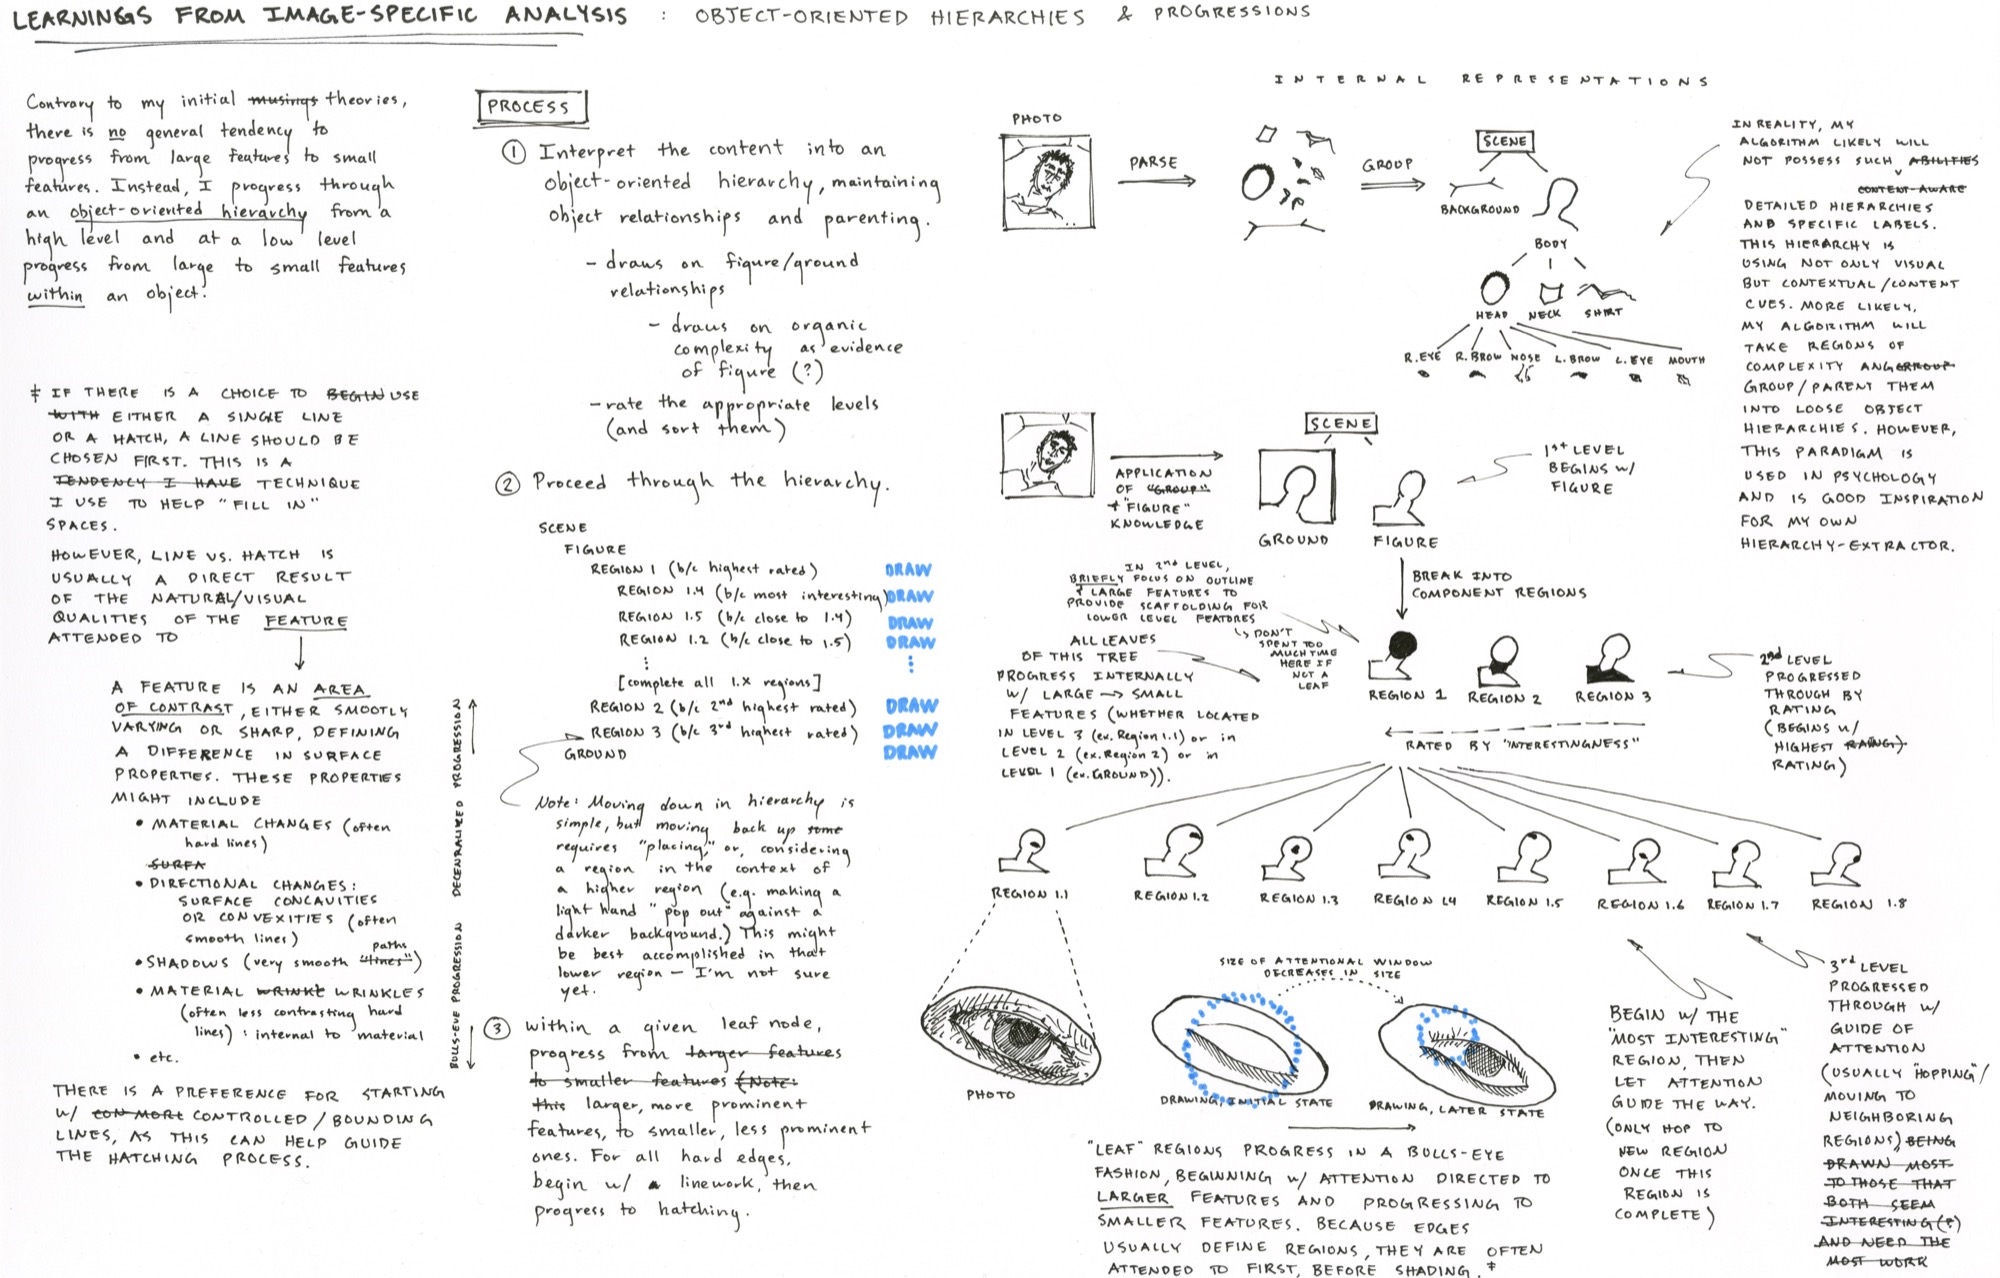 LEARNINGS FROM IMAGE-SPECIFIC ANALYSIS : OBJECT-ORIENTED HIERARCHIES & PROGRESSIONS
Contrary to my initial musings theories,
there is no general tendency to
progress from large features to small
features. Instead, I progress through
an object-oriented hierarchy from a
high level and at a low level
progress from large to small features
within an object.
‡ IF THERE IS A CHOICE TO BEGIN USE
WITH EITHER A SINGLE LINE
OR A HATCH, A LINE SHOULD BE
CHOSEN FIRST. THIS IS A
TENDENCY I HAVE TECHNIQUE
I USE TO HELP "FILL IN"
SPACES.
HOWEVER, LINE VS. HATCH IS
USUALLY A DIRECT RESULT
OF THE NATURAL/VISUAL
QUALITIES OF THE FEATURE
ATTENDED TO
A FEATURE IS AN AREA
OF CONTRAST, EITHER SMOOTLY
VARYING OR SHARP, DEFINING
A DIFFERENCE IN SURFACE
PROPERTIES. THESE PROPERTIES
MIGHT INCLUDE
• MATERIAL CHANGES (often
hard lines)
SURFA
• DIRECTIONAL CHANGES:
SURFACE CONCAVITIES
OR CONVEXITIES (often
smooth lines)
paths
• SHADOWS (very smooth "lines")
• MATERIAL WRINKL WRINKLES
(often less contrasting hard
lines) : internal to material
• etc.
THERE IS A PREFERENCE FOR STARTING
W/ CON MORE CONTROLLED / BOUNDING
LINES, AS THIS CAN HELP GUIDE
THE HATCHING PROCESS.
PROCESS
① Interpret the content into an
object-oriented hierarchy, maintaining
object relationships and parenting.
- draws on figure/ground
relationships
- draws on organic
complexity as evidence
of figure (?)
- rate the appropriate levels
(and sort them)
② Proceed through the hierarchy.
SCENE
FIGURE
REGION 1 (b/c highest rated) DRAW
REGION 1.4 (b/c most interesting) DRAW
REGION 1.5 (b/c close to 1.4) DRAW
REGION 1.2 (b/c close to 1.5) DRAW
[complete all 1.x regions]
REGION 2 (b/c 2nd highest rated) DRAW
REGION 3 (b/c 3rd highest rated) DRAW
GROUND DRAW
Note: Moving down in hierarchy is
simple, but moving back up some
requires "placing," or, considering
a region in the context of
a higher region (e.g. making a
light hand "pop out" against a
darker background.) This might
be best accomplished in that
lower region — I'm not sure
yet.
BULLS-EYE PROGRESSION DECENRALIZED PROGRESSION
③ within a given leaf node,
progress from larger features
to smaller features (Note:
this larger, more prominent
features, to smaller, less prominent
ones. For all hard edges,
begin w/ a linework, then
progress to hatching.
INTERNAL REPRESENTATIONS
PHOTO
PARSE
GROUP
SCENE
BACKGROUND
BODY
HEAD NECK SHIRT
R. EYE R. BROW NOSE L. BROW L. EYE MOUTH
IN REALITY, MY
ALGORITHM LIKELY WILL
NOT POSSESS SUCH ABILITIES
CONTENT-AWARE
DETAILED HIERARCHIES
AND SPECIFIC LABELS.
THIS HIERARCHY IS
USING NOT ONLY VISUAL
BUT CONTEXTUAL/CONTENT
CUES. MORE LIKELY,
MY ALGORITHM WILL
TAKE REGIONS OF
COMPLEXITY AN
GROUP/PARENT THEM
INTO LOOSE OBJECT
HIERARCHIES. HOWEVER,
THIS PARADIGM IS
USED IN PSYCHOLOGY
AND IS GOOD INSPIRATION
FOR MY OWN
HIERARCHY-EXTRACTOR.
APPLICATION
OF "GROUP"
+ "FIGURE"
KNOWLEDGE
SCENE
GROUND FIGURE
1st LEVEL
BEGINS W/
FIGURE
BREAK INTO
COMPONENT REGIONS
IN 2nd LEVEL,
BRIEFLY FOCUS ON OUTLINE
& LARGE FEATURES TO
PROVIDE SCAFFOLDING FOR
LOWER LEVEL FEATURES
↳ DON'T
SPENT TOO
MUCH TIME
HERE IF
NOT A
LEAF
ALL LEAVES
OF THIS TREE
PROGRESS INTERNALLY
W/ LARGE → SMALL
FEATURES (WHETHER LOCATED
IN LEVEL 3 (ex. Region 1.1) or in
LEVEL 2 (ex. Region 2) or in
LEVEL 1 (ex. GROUND)).
REGION 1 REGION 2 REGION 3
RATED BY "INTERESTINGNESS"
2nd LEVEL
PROGRESSED
THROUGH BY
RATING
(BEGINS W/
HIGHEST RATING).
RATING)
REGION 1.1 REGION 1.2 REGION 1.3 REGION 1.4 REGION 1.5 REGION 1.6 REGION 1.7 REGION 1.8
PHOTO
SIZE OF ATTENTIONAL WINDOW
DECREASES IN SIZE
DRAWING, INITIAL STATE
DRAWING, LATER STATE
"LEAF" REGIONS PROGRESS IN A BULLS-EYE
FASHION, BEGINNING W/ ATTENTION DIRECTED TO
LARGER FEATURES AND PROGRESSING TO
SMALLER FEATURES. BECAUSE EDGES
USUALLY DEFINE REGIONS, THEY ARE OFTEN
ATTENDED TO FIRST, BEFORE SHADING. ‡
BEGIN W/ THE
"MOST INTERESTING"
REGION, THEN
LET ATTENTION
GUIDE THE WAY.
(ONLY HOP TO
NEW REGION
ONCE THIS
REGION IS
COMPLETE)
3rd LEVEL
PROGRESSED
THROUGH W/
GUIDE OF
ATTENTION
(USUALLY "HOPPING"/
MOVING TO
NEIGHBORING
REGIONS) BEING
DRAWN MOST
TO THOSE THAT
BOTH SEEM
INTERESTING (?)
AND NEED THE
MOST WORK